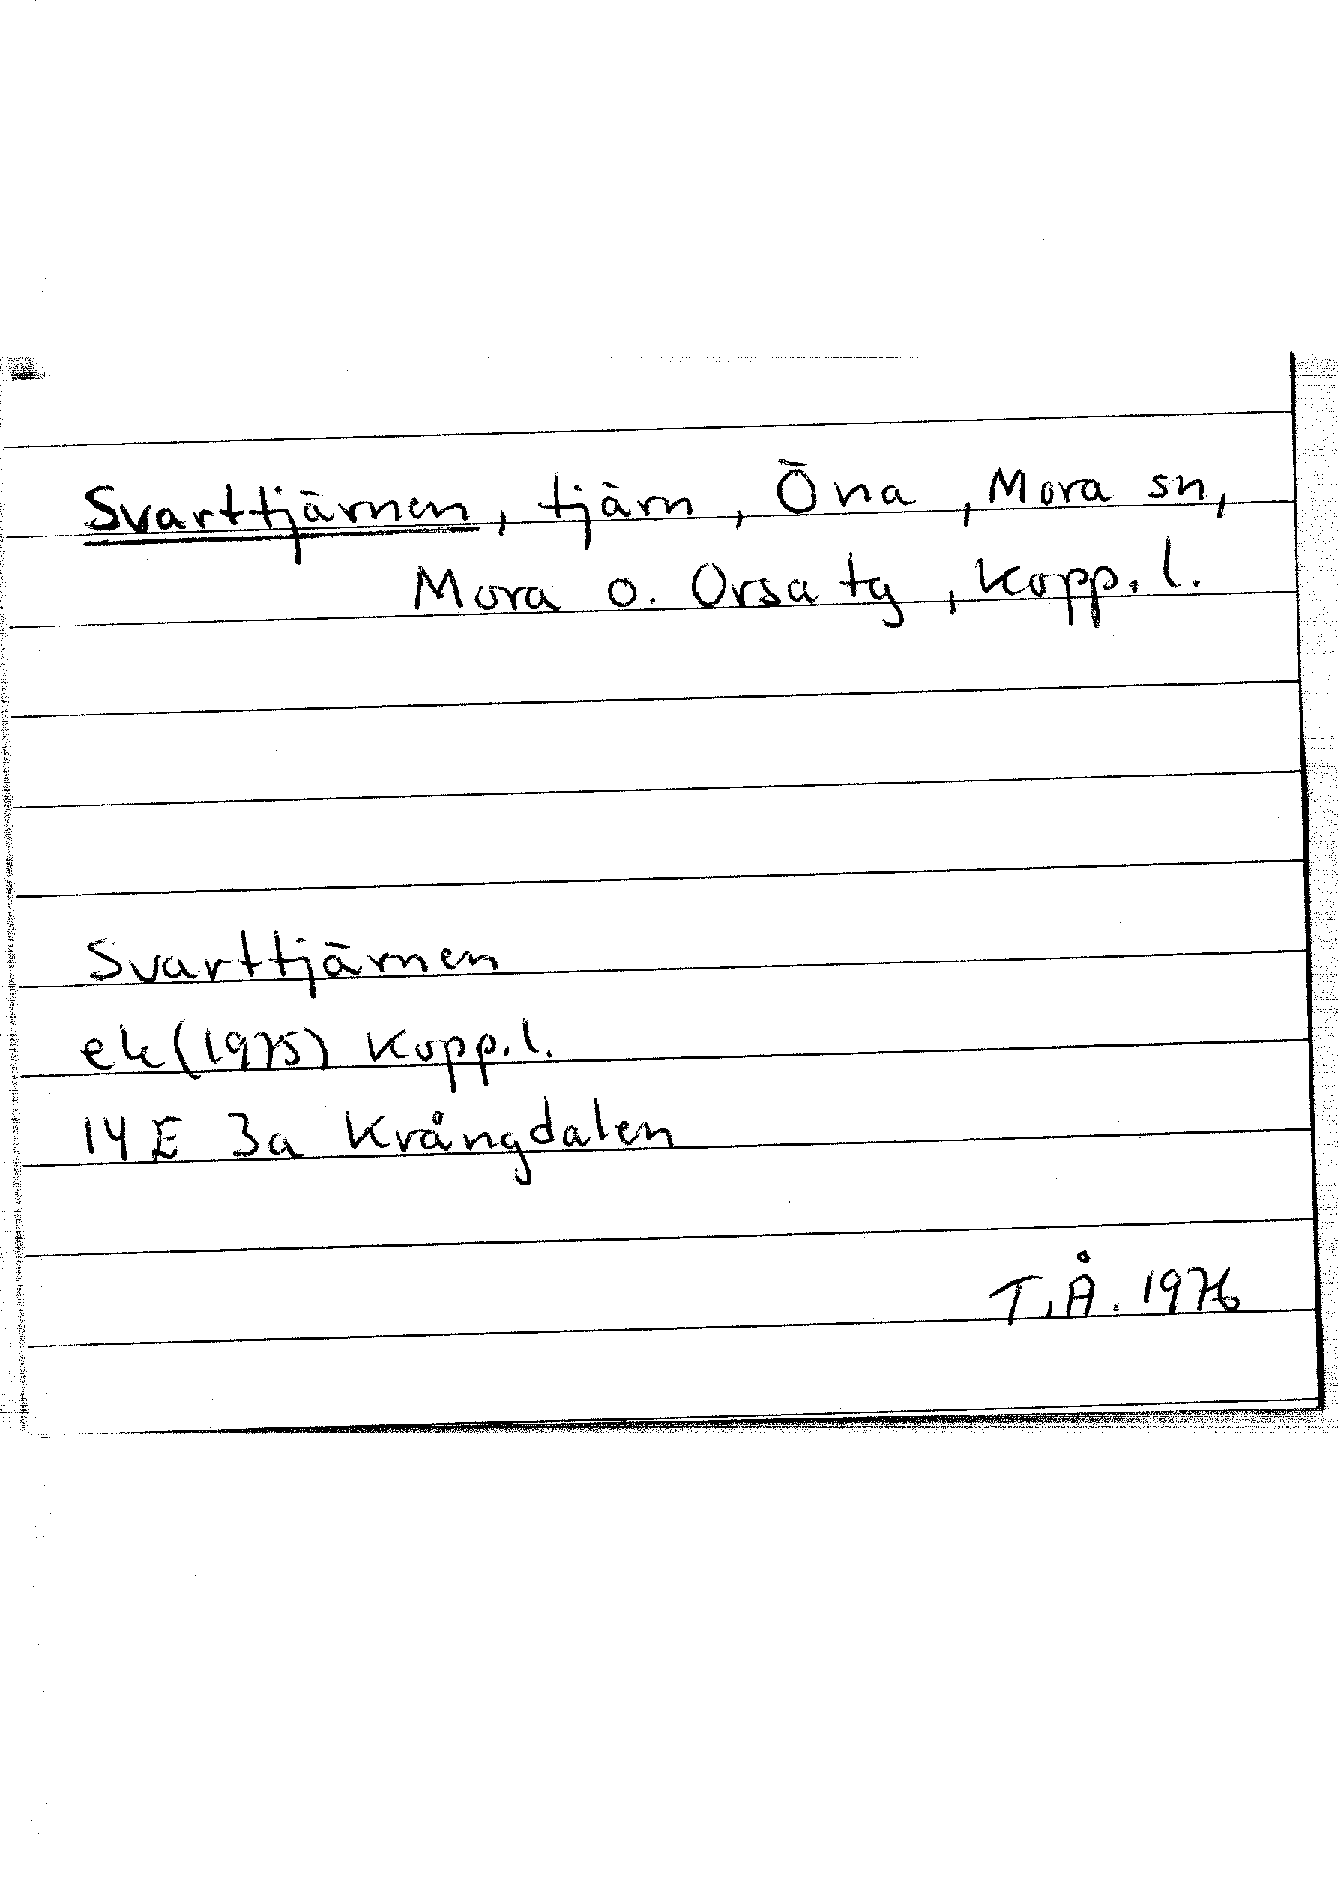 Svarttjärnen, tjärn, Öna, Mora sn,
Mora o. Orsa tg, Kopp. l.
Svarttjärnen
ek (1975) Kopp. l.
14 E 3a Krångdalen
T.Å. 1976